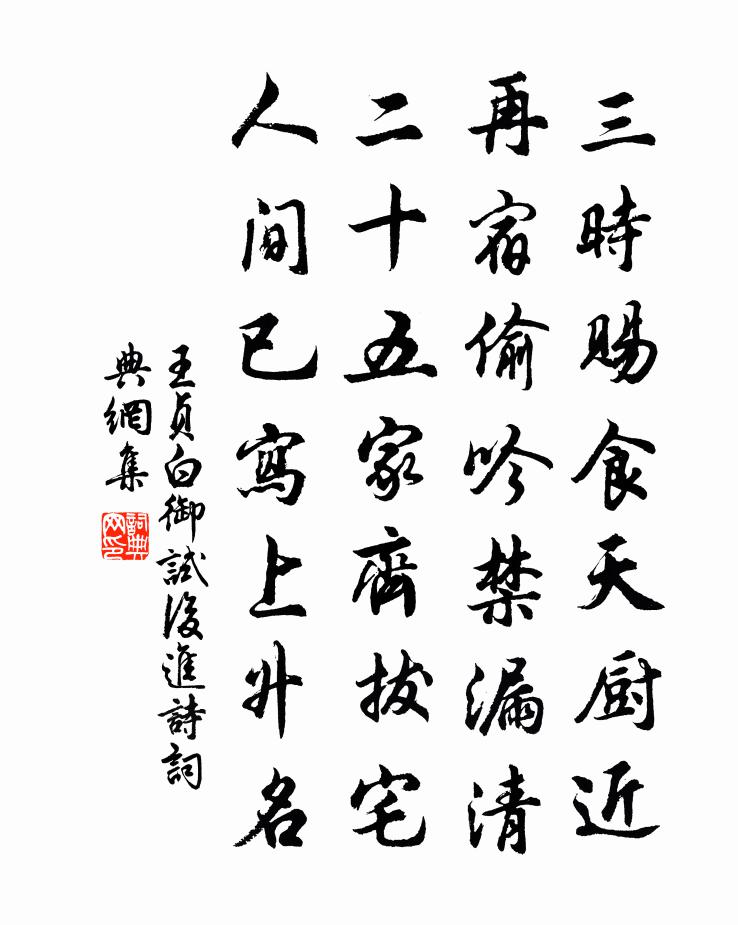 三時賜食天厨近
再宿偷吟禁漏清
二十五家齊拔宅
人间已寫上升名
王貞白御試後進詩詞
典網集
詞典
网印